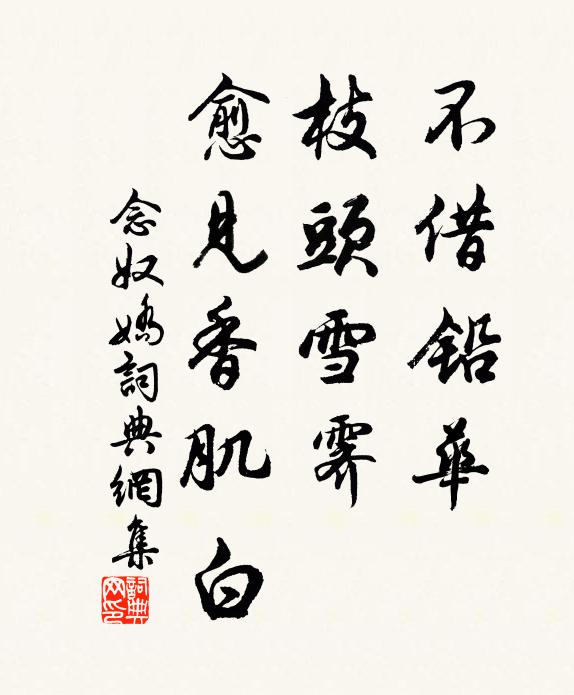 不借鉛華
枝頭雪霽
愈見香肌白
念奴嬌詞典網集
詞典网印